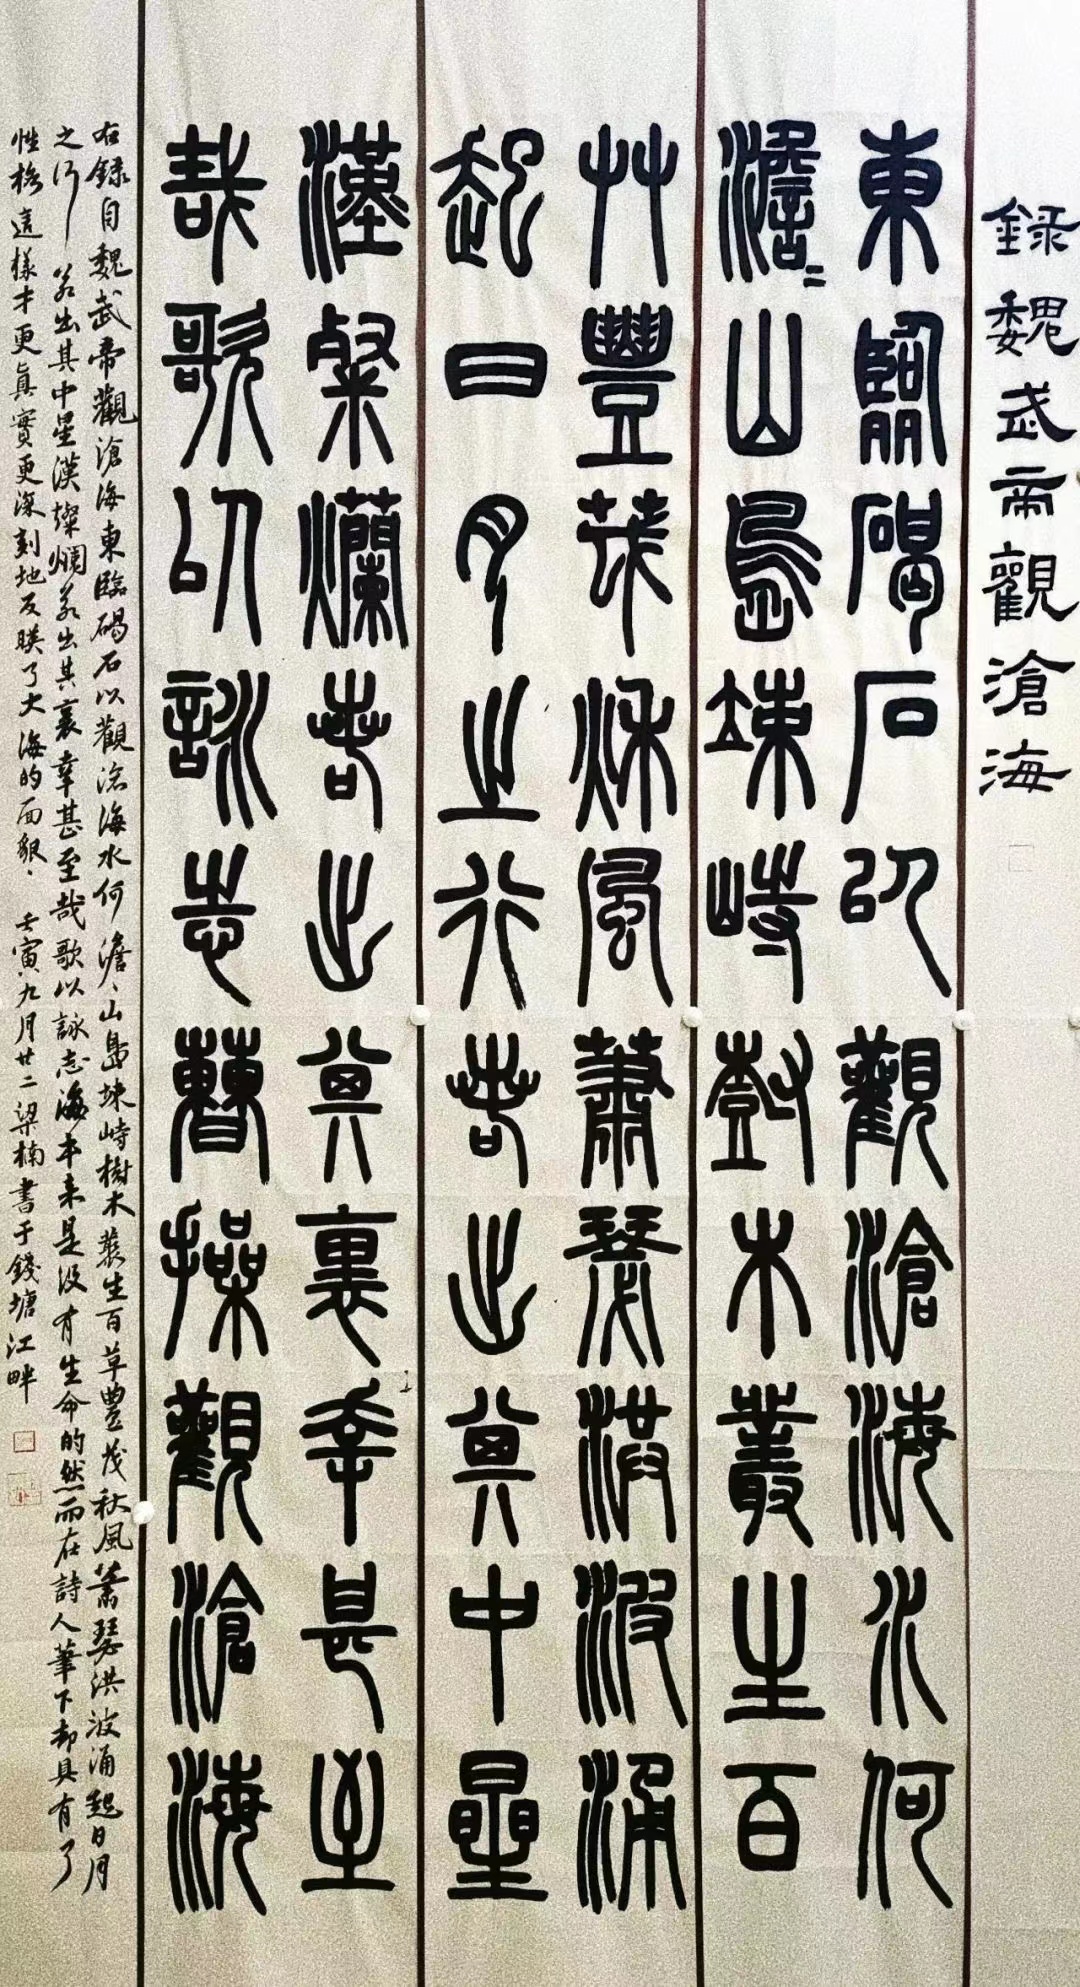 錄魏武帝觀滄海
東臨碣石以觀滄海水何
澹〻山島竦峙樹木叢生百
艸豐茂秋風蕭瑟洪波涌
起日月之行若出其中星
漢粲爛若出其裏幸甚至
哉歌以詠志曹操觀滄海
右録自魏武帝觀滄海東臨碣石以觀滄海水何澹〻山島竦峙樹木叢生百草豐茂秋風蕭瑟洪波涌起日月
之行若出其中星漢燦爛若出其裏幸甚至哉歌以詠志海本来是没有生命的然而在詩人筆下却具有了
性格這樣才更真實更深刻地反映了大海的面貌、壬寅九月廿二梁楠書于錢塘江畔